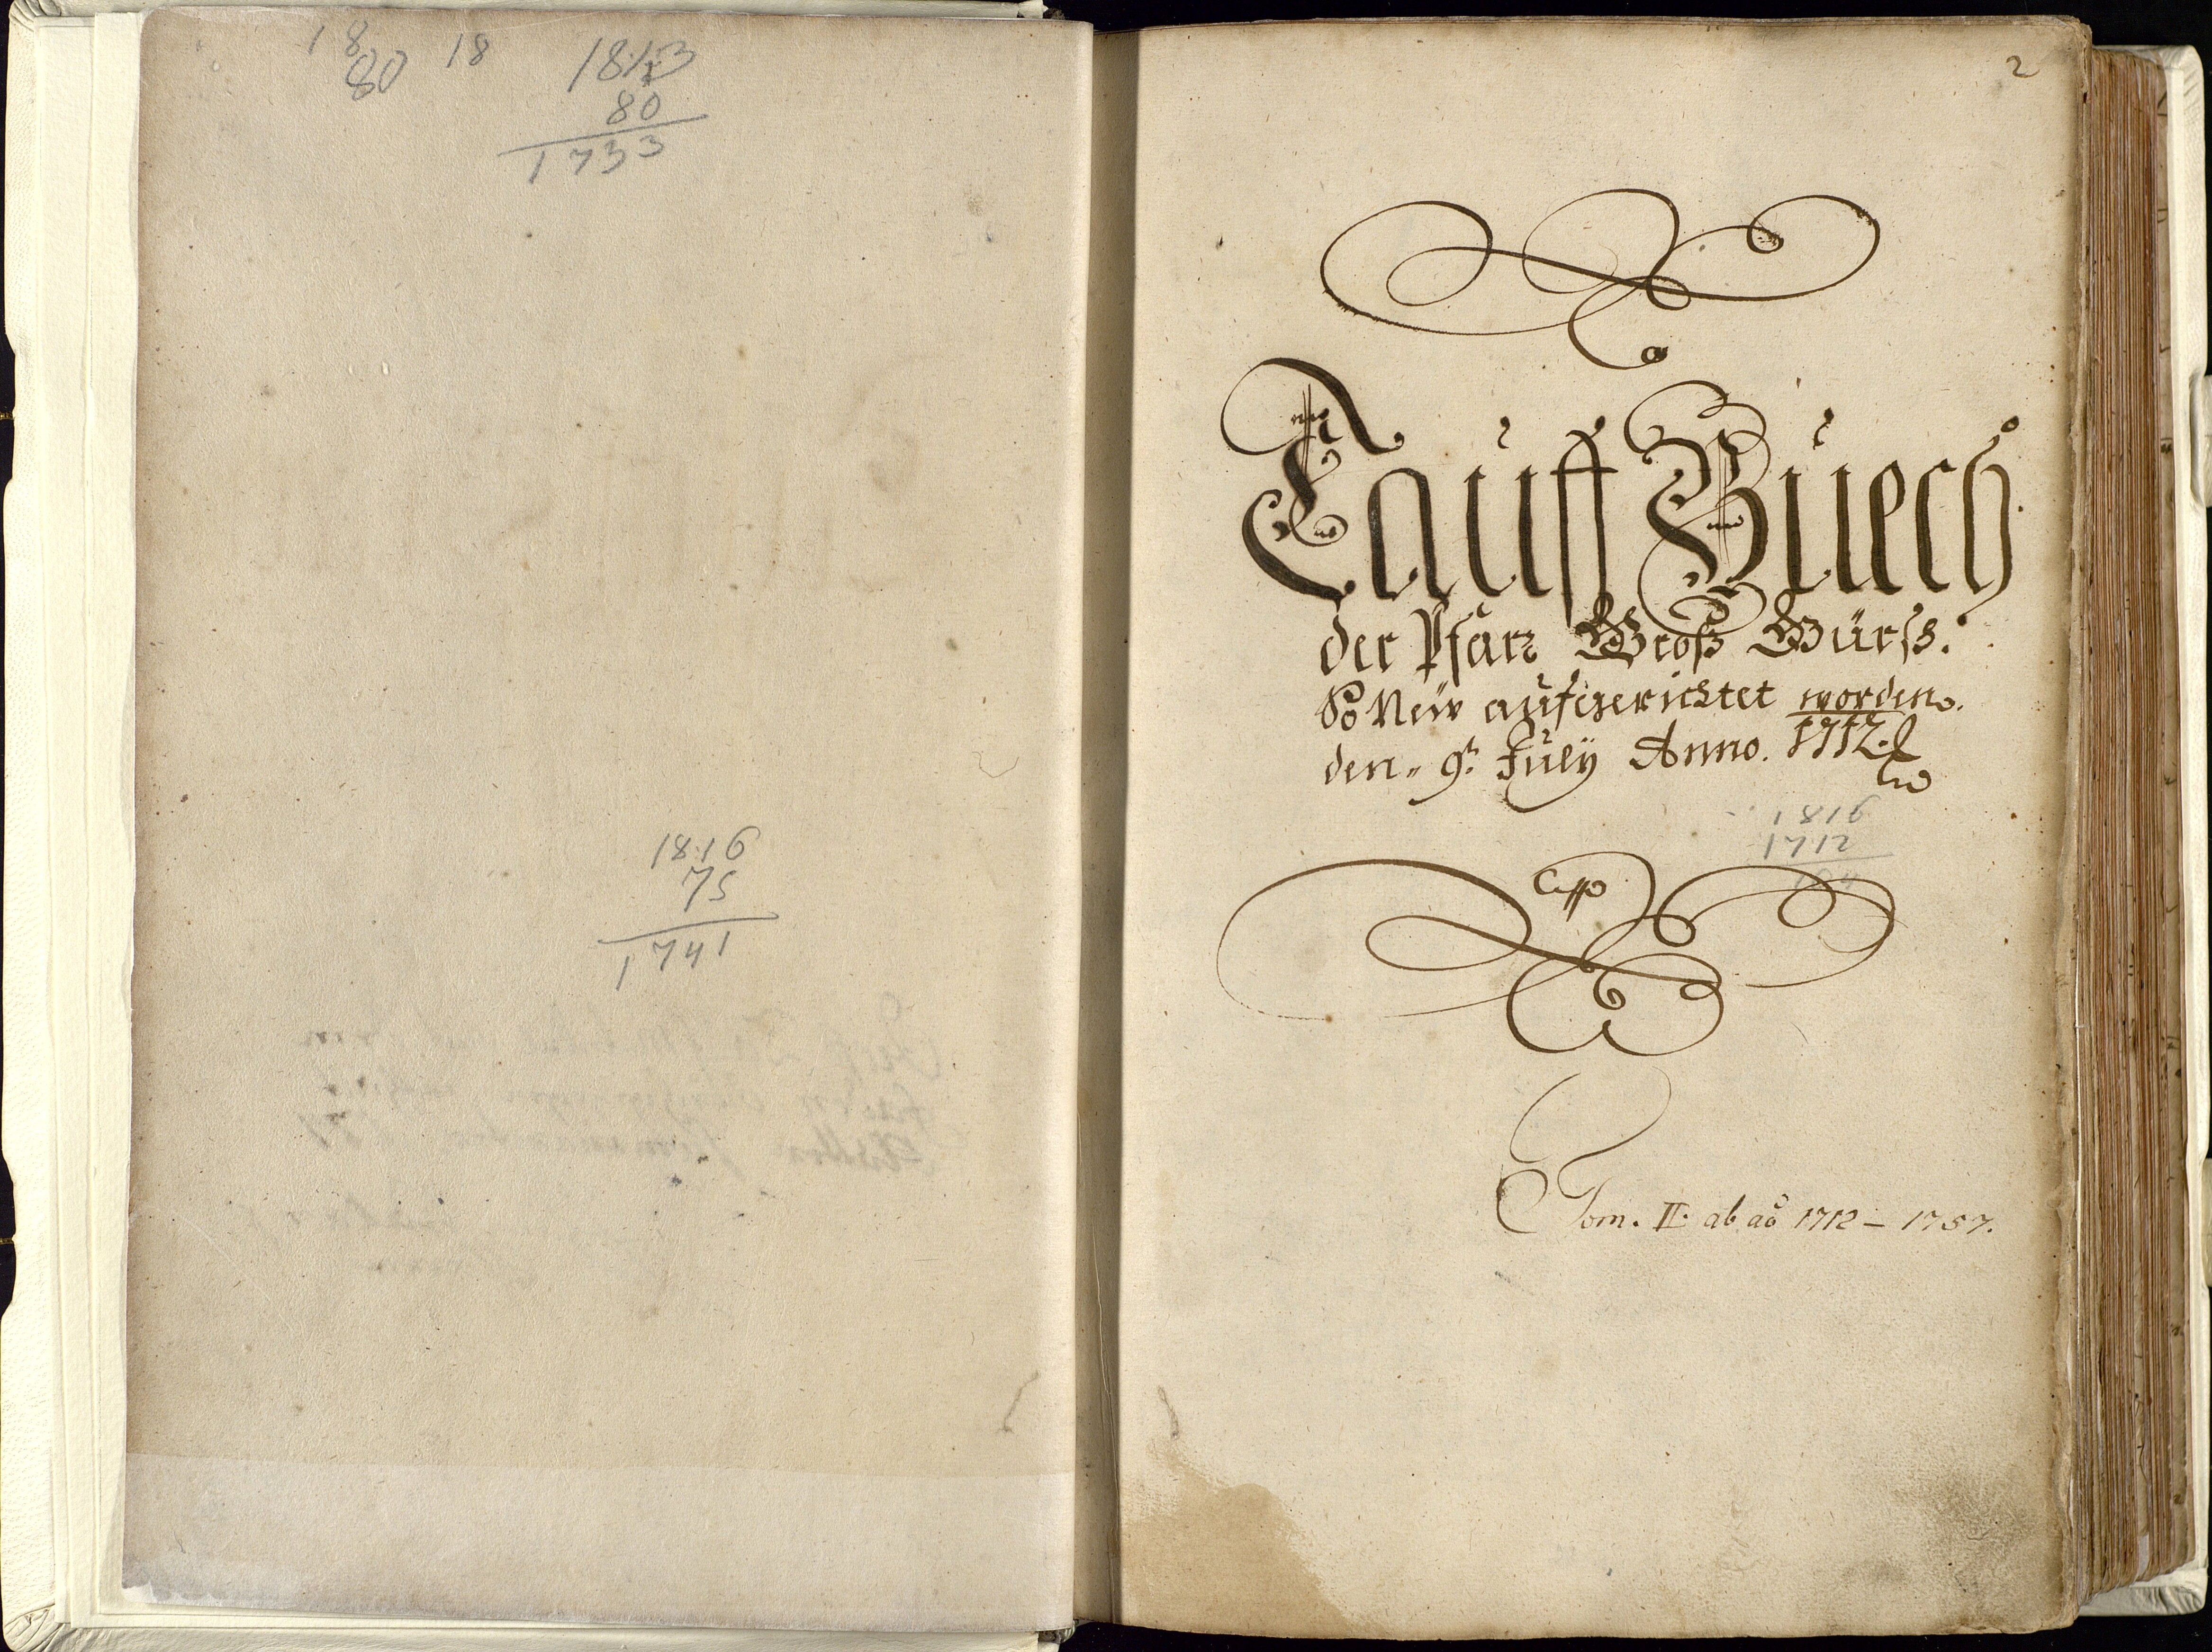 18 18
80
1813
80
1733
1816
75
1741
2
Tauff Buech
der Pfarr Groß Würß.
So New aufgerichtet worden.
den 9t. July Anno. 1712.
1816
1712
104
Tom. II. ab ao 1712 – 1757.